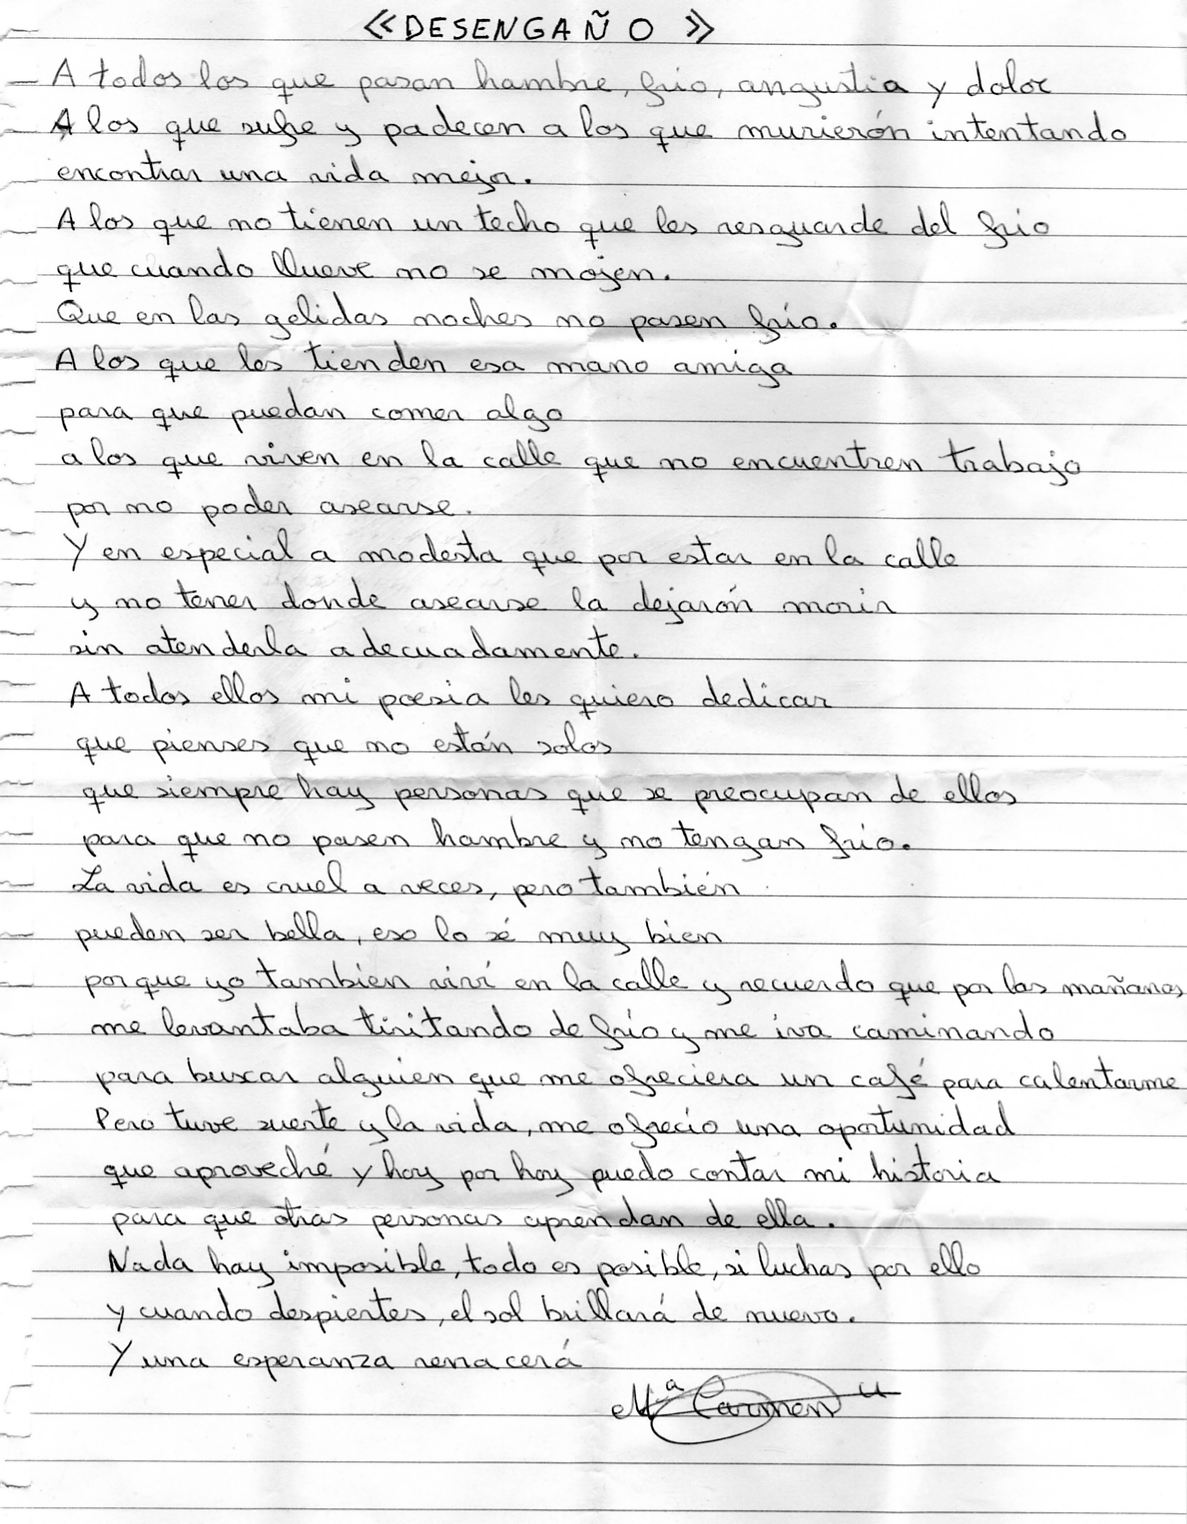 «DESENGAÑO»
A todos los que pasan hambre, frio, angustia y dolor
A los que sufre y padecen a los que murierón intentando
encontrar una vida mejor.
A los que no tienen un techo que les resguarde del frio
que cuando llueve no se mojen.
Que en las gelidas noches no pasen frío.
A los que les tienden esa mano amiga
para que puedan comer algo
a los que viven en la calle que no encuentren trabajo
por no poder asearse.
Y en especial a modesta que por estar en la calle
y no tener donde asearse la dejarón morir
sin atenderla adecuadamente.
A todos ellos mi poesia les quiero dedicar
que pienses que no están solos
que siempre hay personas que se preocupan de ellos
para que no pasen hambre y no tengan frio.
La vida es cruel a veces, pero también
pueden ser bella, eso lo sé muy bien
porque yo tambien viví en la calle y recuerdo que por las mañanas
me levantaba tiritando de frío y me iva caminando
para buscar alguien que me ofreciera un café para calentarme
Pero tuve suerte y la vida, me ofrecio una oportunidad
que aproveché y hoy por hoy puedo contar mi historia
para que otras personas aprendan de ella.
Nada hay imposible, todo es posible, si luchas por ello
y cuando despiertes, el sol brillará de nuevo.
Y una esperanza renacerá
Mª Carmen